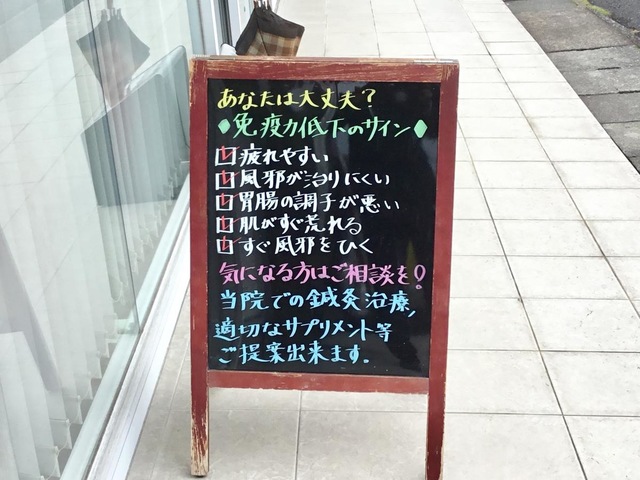 あなたは大丈夫？
◆免疫力低下のサイン◆
☑疲れやすい
☑風邪が治りにくい
☑胃腸の調子が悪い
☑肌がすぐ荒れる
☑すぐ風邪をひく
気になる方はご相談を！
当院での鍼灸治療、
適切なサプリメント等
ご提案出来ます。